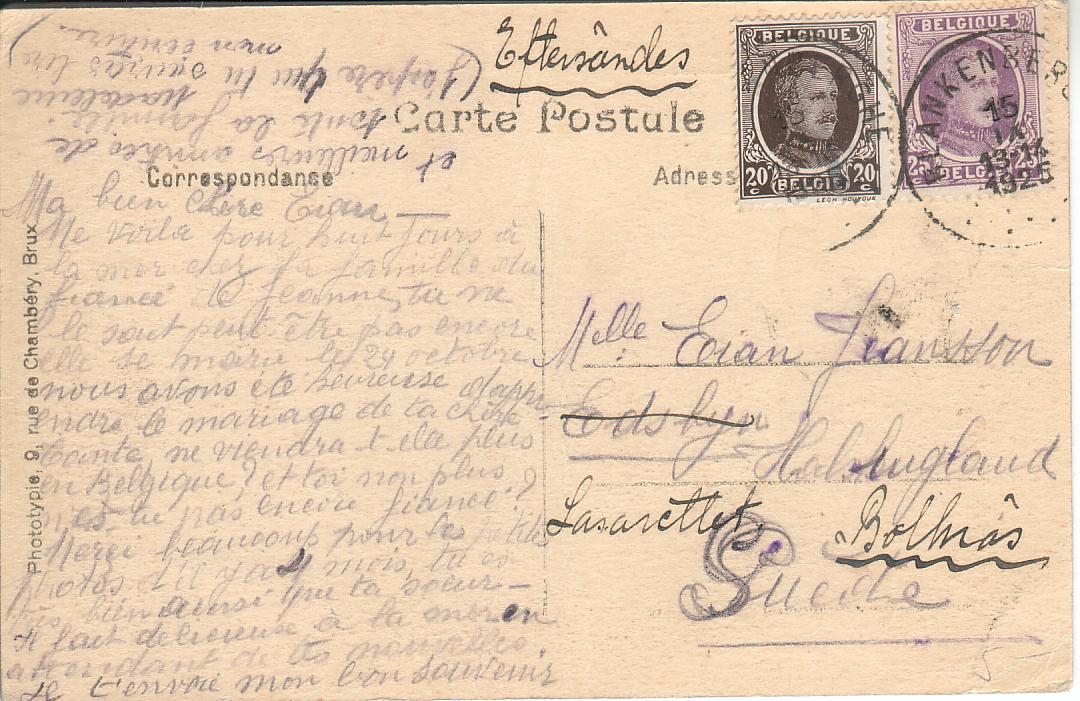 Eftersändes
Carte Postale
Correspondance
Adresse
BELGIQUE
20c BELGIË 20c
LEON HOUYOUX
BELGIQUE
25 BELGIË
BLANKENBERGHE
15
IX
13-14
1925
Phototypie, 9, rue de Chambéry, Brux
Ma bien chère Eian —
Me voila pour huit jours à
la mer chez la famille du
fiancé de Jeanne, tu ne
le sait peut-être pas encore
elle se marie le 24 octobre
nous avons été heureuse d'appr-
endre le mariage de ta chère
tante, ne viendra t elle plus
en Belgique? et toi non plus
n'es-tu pas encore fiancé?
Merci beaucoup pour les petites
photos d'il y a mois, tu es
très bien aussi que ta soeur —
Il fait delicieuse à la mer en
attendant de tes nouvelles.
Je t'envoie mon bon souvenir
et meilleures amitiés de
toute la famille
Madeleine
(J'espère que tu sauras lire
mon écriture)
Melle Eian Jeansson
Edsbyn
Halsingland
Lasarettet, Bollnäs
Suède
5